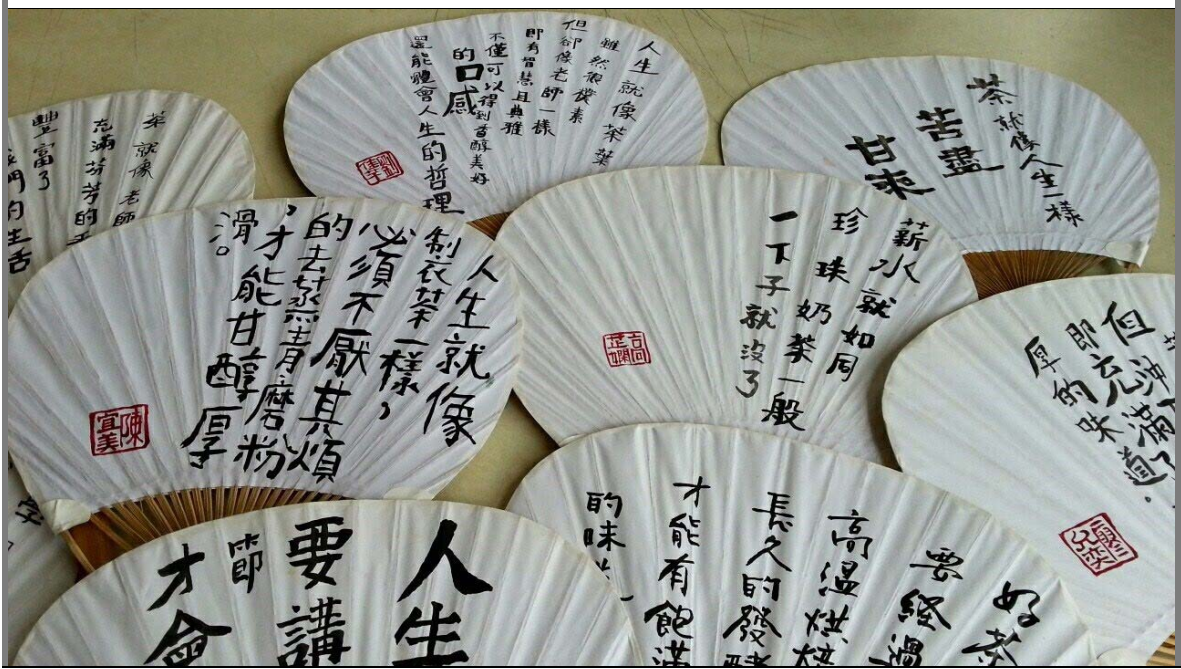 茶就像老師
充滿芬芳的
豐富了
我們的生活
人生就像茶葉
雖然很樸素
但卻像老師一樣
即有智慧且典雅
不僅可以得到香醇美好
的口感
還能體會人生的哲理
茶就像人生一樣
苦盡
甘來
人生就像
制衣茶一樣，
必須不厭其煩
的去蒸青、磨粉
，才能甘醇厚
滑。
陳宜美
薪水就如同
珍珠奶茶一般
一下子就沒了
但沖
即充滿了
厚的味道。
人生
要講
節
才會
好茶
要經過
高溫烘焙
長久的發酵
才能有飽滿
的味